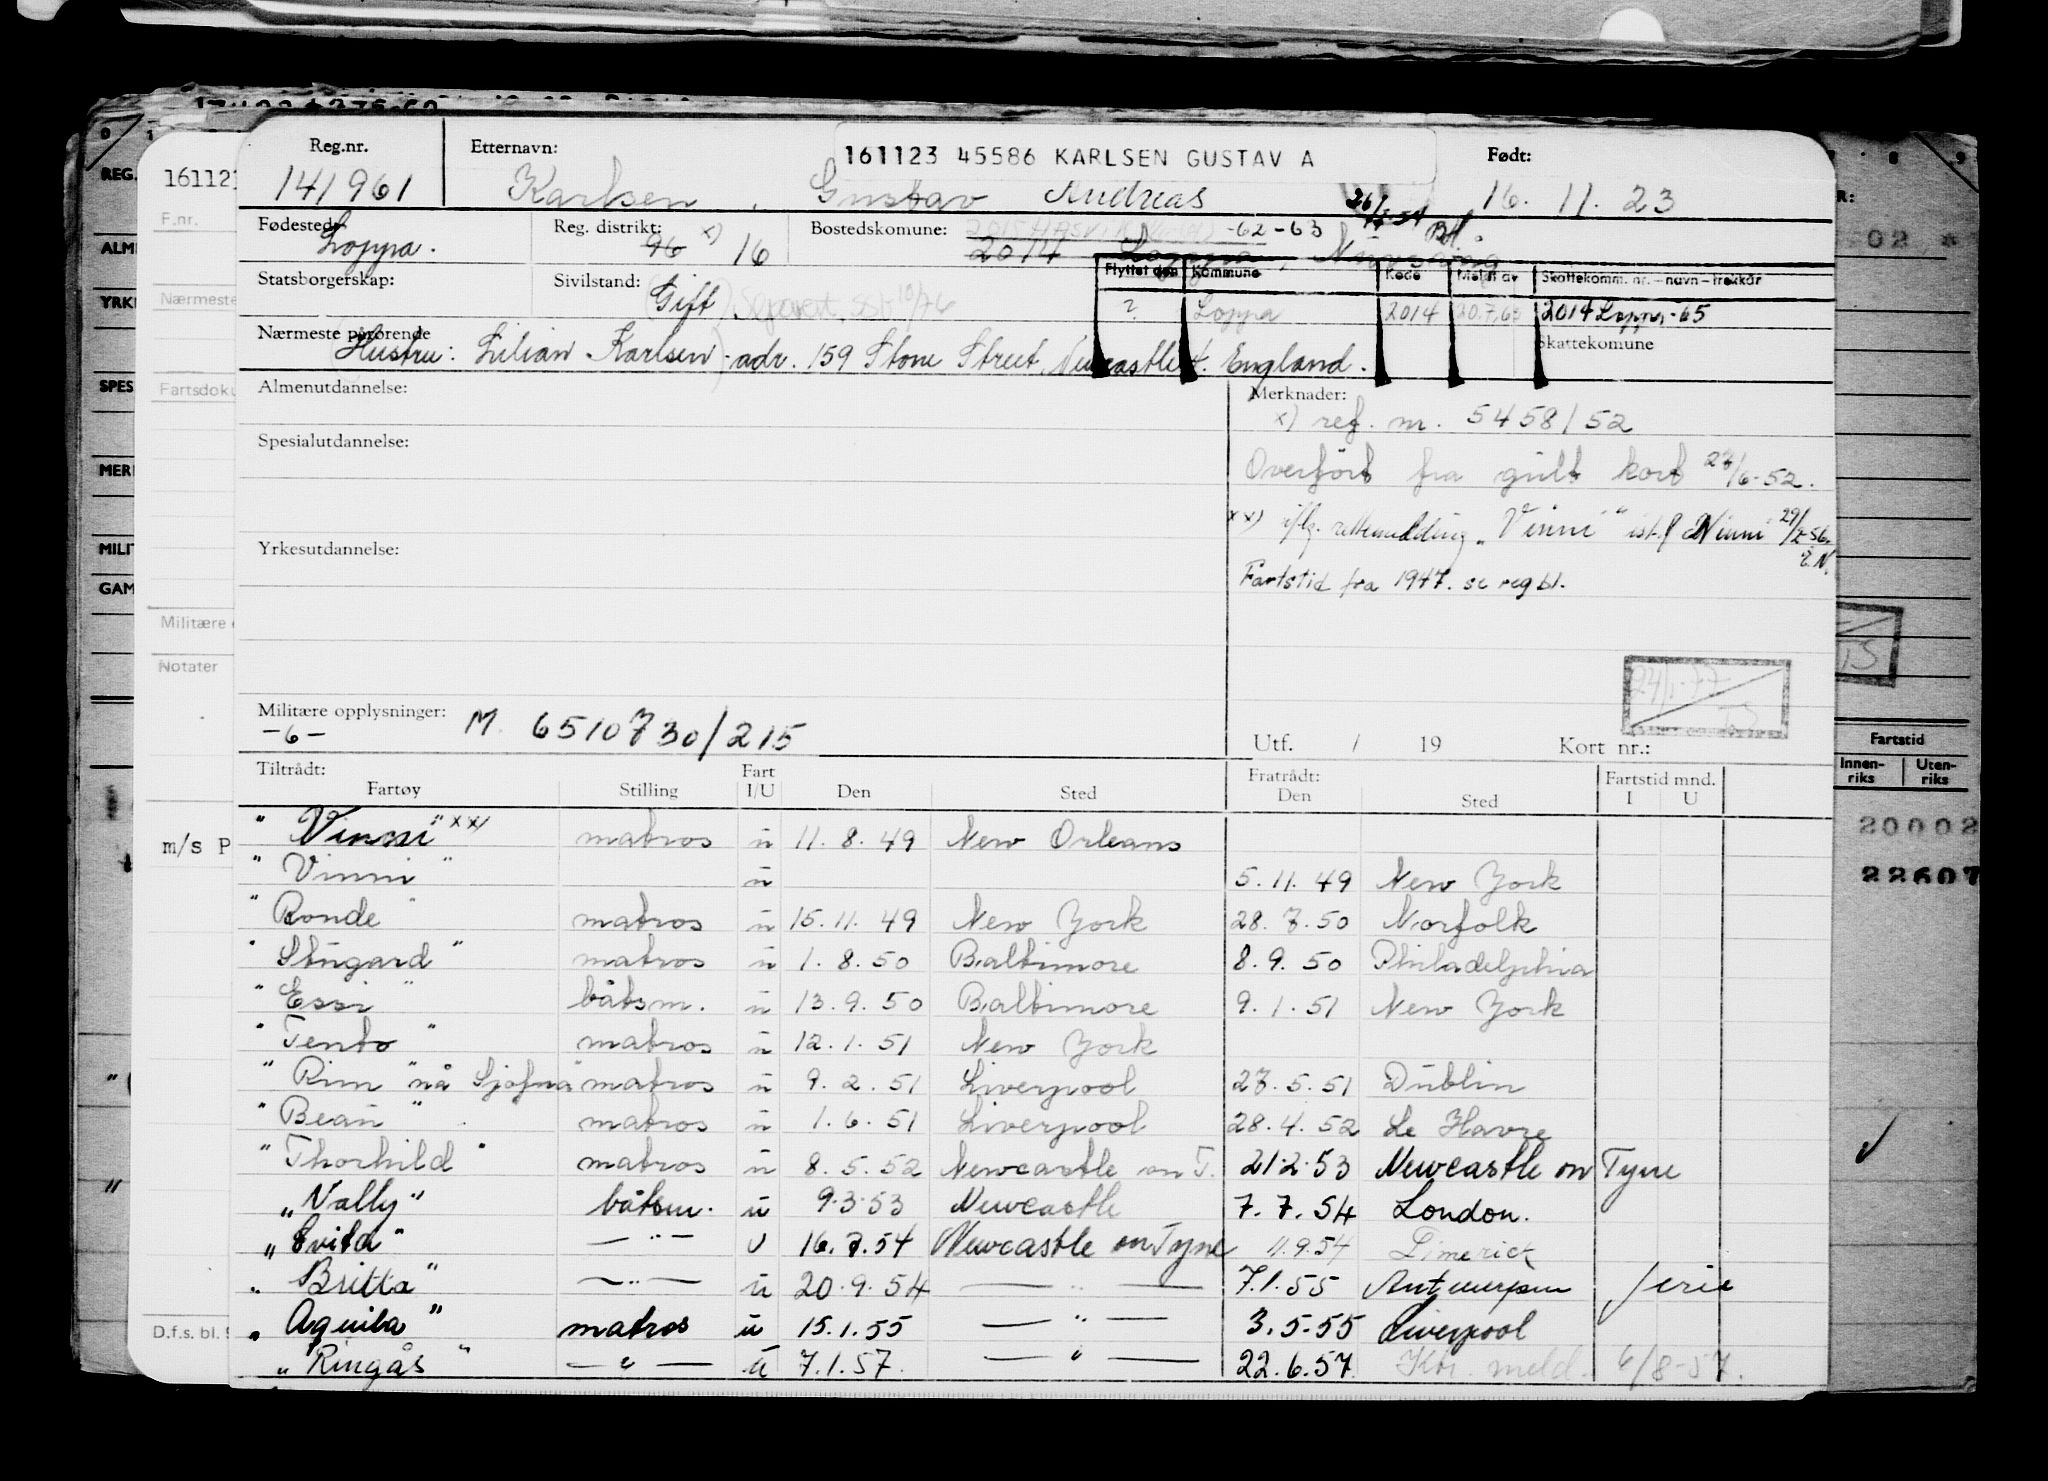 Reg.nr. Etternavn: 161123 45586 KARLSEN GUSTAV A Født:
141961 Karlsen, Gustav Andreas 16.11.23
Fødested: Loppa. Reg. distrikt: 96 x) 16 Bostedskomune: -62-63
2014 Loppa
Flyttet den Kommune Kode Meldt av Skattekomm. nr. – navn – trekkår
Statsborgerskap: Sivilstand: Gift ? Loppa 2014 2014 Loppa-65
Nærmeste pårørende Skattekomune
Hustru: Lilian Karlsen - adr. 159 Stone Street, Newcastle England.
Almenutdannelse: Merknader:
x) ref. nr. 5458/52
Spesialutdannelse:
Overført fra gult kort 27/6-52.
xx) iflg. rettemelding "Vinni" ist.f. "Ninni" E.N.
Yrkesutdannelse:
Fartstid fra 1947. se reg bl.
Militære opplysninger: M 6510730/215
-6-
Utf. / 19 Kort nr.:
Tiltrådt: Fart Fratrådt: Fartstid mnd.
Fartøy Stilling I/U Den Sted Den Sted I U
"Vinni" xx) matros u 11.8.49 New Orleans
"Vinni" u 5.11.49 New York
"Ronde" matros u 15.11.49 New York 28.7.50 Norfolk
"Stugard" matros u 1.8.50 Baltimore 8.9.50 Philadelphia
"Essi" båtsm. u 13.9.50 Baltimore 9.1.51 New York
"Tento" matros u 12.1.51 New York
"Rim" nå Sjofna" matros u 9.2.51 Liverpool 27.5.51 Dublin
"Beau" matros u 1.6.51 Liverpool 28.4.52 Le Havre
"Thorhild" matros u 8.5.52 Newcastle on T. 21.2.53 Newcastle on Tyne
"Vally" båtsm. u 9.3.53 Newcastle 7.7.54 London.
"Evita" — " — U 16.7.54 Newcastle on Tyne 11.9.54 Limerick
"Britta" — " — u 20.9.54 — " — 7.1.55 Antwerpen ferie
"Aquila" matros u 15.1.55 — " — 3.5.55 Liverpool
"Ringås" — " — u 7.1.57. — " — 22.6.57 Ktr. meld. 6/8-57.
16112
F.nr.
Nærmeste
Fartsdoku
Militære
Notater
m/s P
D.f.s. bl.
REG.
ALM
YRK
SPES
MER
MILIT
GAM
Fartstid
Innen-riks Uten-riks
20002
22607